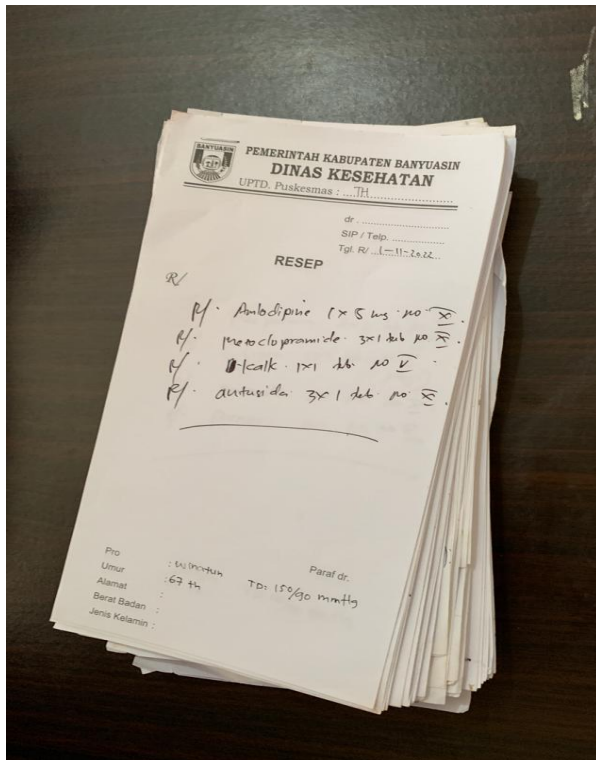 BANYUASIN
PEMERINTAH KABUPATEN BANYUASIN
DINAS KESEHATAN
UPTD. Puskesmas : TH
dr
SIP / Telp.
Tgl. R/ 1-11-2022
RESEP
R/
R/. Amlodipine 1x5 mg no X.
R/. metoclopramide 3x1 tab no X.
R/. kalk 1x1 tab no V
R/. antasida 3x1 tab no X.
Pro :
Paraf dr.
Umur : 67 th
TD: 150/90 mmHg
Alamat :
Berat Badan :
Jenis Kelamin :